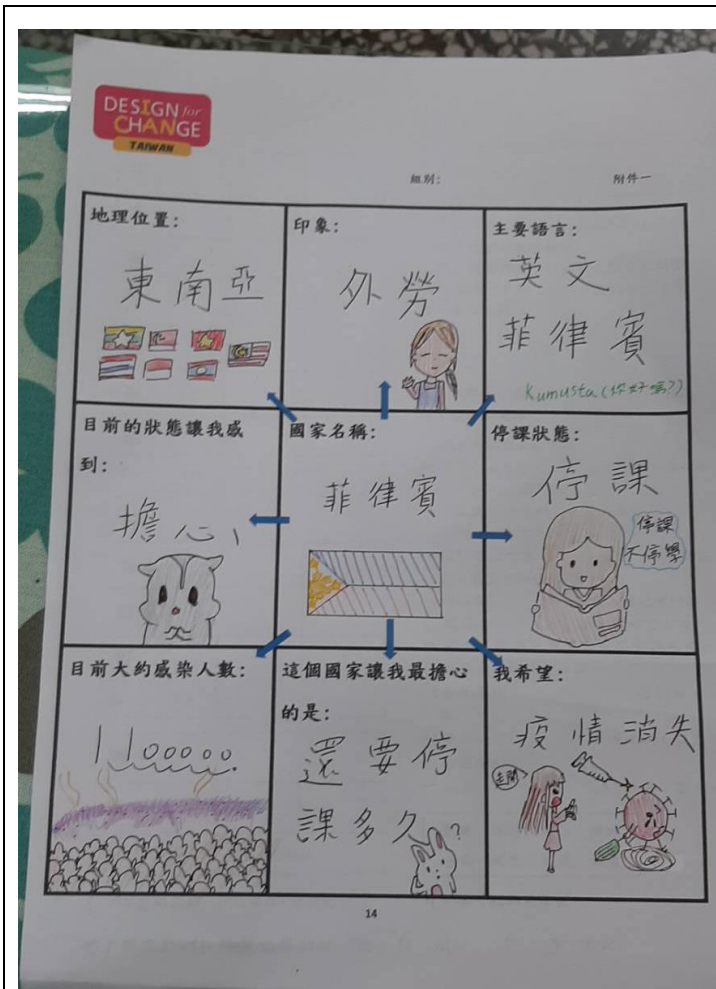 DESIGN for
CHANGE
TAIWAN
組別:
附件一
地理位置:
東南亞
印象:
外勞
主要語言:
英文
菲律賓
Kumusta(你好嗎?)
目前的狀態讓我感
到:
擔心
國家名稱:
菲律賓
停課狀態:
停課
停課
不停學
目前大約感染人數:
1100000
這個國家讓我最擔心
的是:
還要停
課多久?
我希望:
疫情消失
走開
14